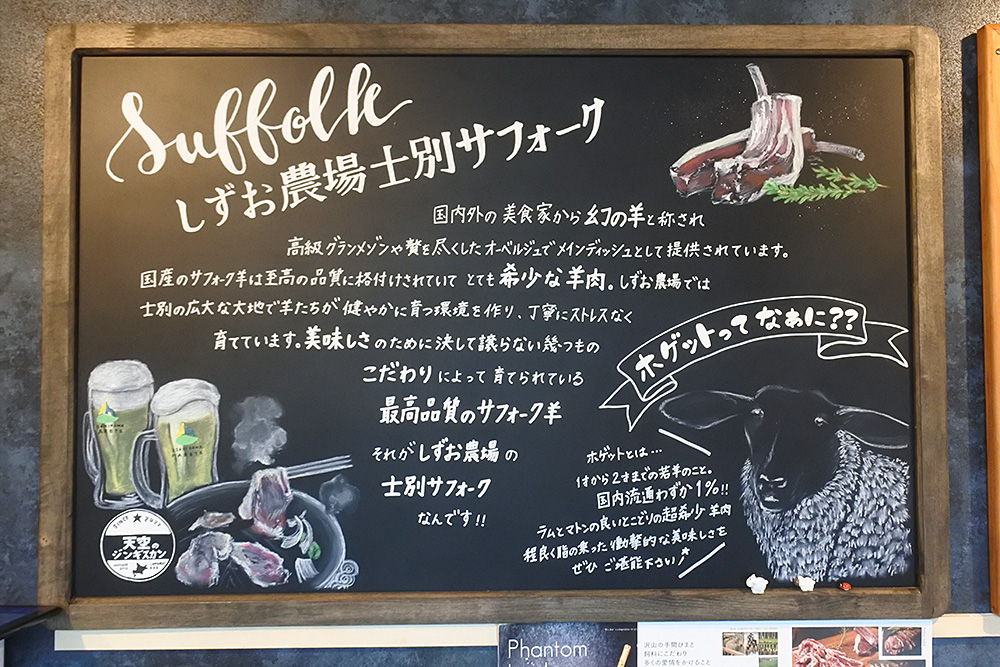 Suffolk
しずお農場 士別サフォーク
国内外の美食家から幻の羊と称され
高級グランメゾンや贅を尽くしたオーベルジュでメインディッシュとして提供されています。
国産のサフォーク羊は至高の品質に格付けされていて とても希少な羊肉。しずお農場では
士別の広大な大地で羊たちが健やかに育つ環境を作り、丁寧にストレスなく
育てています。美味しさのために決して譲らない幾つもの
こだわりによって育てられている
最高品質のサフォーク羊
それがしずお農場の
士別サフォーク
なんです!!
ホゲットってなぁに??
ホゲットとは…
1才から2才までの若羊のこと。
国内流通わずか1%!!
ラムとマトンの良いとこどりの超希少羊肉
程良く脂の乗った衝撃的な美味しさを
ぜひ ご堪能下さい!
SINCE ★ 2021
天空の
ジンギスカン
Phantom
沢山の手間ひまと
飼料にこだわり
多くの愛情をかけること